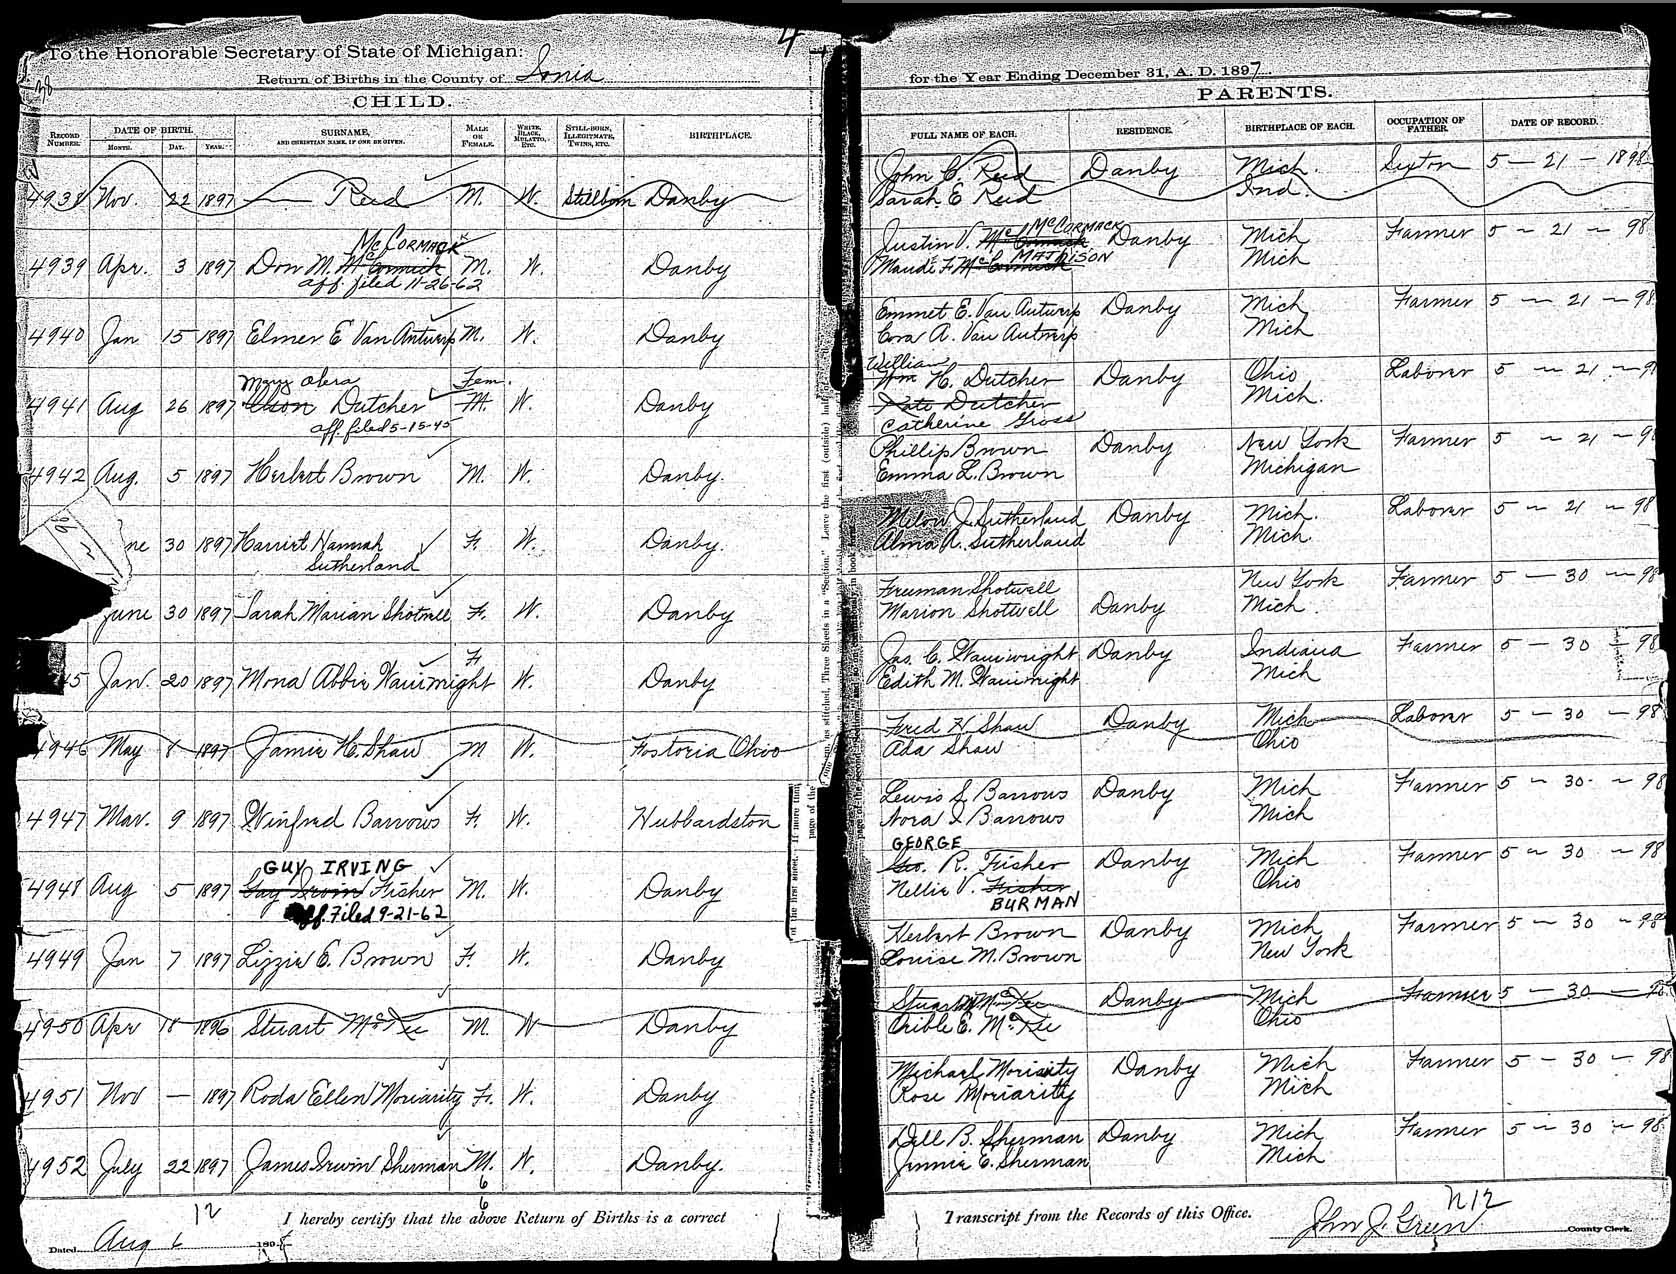 4
To the Honorable Secretary of State of Michigan:
Return of Births in the County of Ionia
for the Year Ending December 31, A. D. 1897.
38
CHILD.
PARENTS.
RECORD NUMBER. DATE OF BIRTH. MONTH. DAY. YEAR. SURNAME, AND CHRISTIAN NAME, IF ONE BE GIVEN. MALE OR FEMALE. WHITE, BLACK, MULATTO, ETC. STILL-BORN, ILLEGITIMATE, TWINS, ETC. BIRTHPLACE. FULL NAME OF EACH. RESIDENCE. BIRTHPLACE OF EACH. OCCUPATION OF FATHER. DATE OF RECORD.
4938 Nov. 22 1897 — Reed M. W. Stillborn Danby John C. Reed Danby Mich. Sexton 5 - 21 - 1898
Sarah E Reed Ind.
McCORMACK McCORMACK
4939 Apr. 3 1897 Don M. McCormick M. W. Danby Justin V. McCormick Danby Mich Farmer 5 - 21 - 98
aff. filed 11-26-62 MATTISON
Maude F. McCormick Mich
4940 Jan 15 1897 Elmer E Van Antwerp M. W. Danby Emmet E. Van Antwerp Danby Mich Farmer 5 - 21 - 98
Cora A. Van Antwerp Mich
Mary Fem. William
4941 Aug 26 1897 Dutcher M. W. Danby Wm H. Dutcher Danby Ohio Laborer 5 - 21 - 9
aff. filed 5-15-45 Kate Dutcher Mich.
Catherine Gross
4942 Aug. 5 1897 Herbert Brown M. W. Danby. Phillip Brown Danby New York Farmer 5 - 21 - 9
Emma L. Brown Michigan
98
ne 30 1897 Harriet Hannah Sutherland F. W. Danby. Milow J. Sutherland Danby Mich. Laborer 5 - 21 - 98
Alma A. Sutherland Mich.
June 30 1897 Sarah Marian Shotwell F. W. Danby Freeman Shotwell New York Farmer 5 - 30 - 98
Marion Shotwell Danby Mich.
15 Jan. 20 1897 Mona Abbie Wainwright F W. Danby Jas. C. Wainwright Danby Indiana Farmer 5 - 30 - 98
Edith M. Wainwright Mich
4946 May 8 1897 Jamie H. Shaw M W. Fostoria Ohio Fred H. Shaw Danby Mich Laborer 5 - 30 - 98
Ada Shaw Ohio
4947 Mar. 9 1897 Winfred Barrows F. W. Hubbardston Lewis S Barrows Danby Mich Farmer 5 - 30 - 98
Nora I Barrows Mich
GUY IRVING GEORGE
4948 Aug 5 1897 Guy Irwin Fisher M. W. Danby Geo. R. Fisher Danby Mich Farmer 5 - 30 - 98
Aff. Filed 9-21-62 Nellie V. Fisher Ohio
BURMAN
4949 Jan 7 1897 Lizzie E. Brown F. W. Danby Herbert Brown Danby Mich Farmer 5 - 30 - 98
Louise M. Brown New York
4950 Apr 18 1896 Stuart McKee M. W Danby Stuart McKee Danby Mich Farmer 5 - 30 - 98
Orible E. McKee Ohio
4951 Nov — 1897 Roda Ellen Moriarity F. W. Danby Michael Moriarity Danby Mich Farmer 5 - 30 - 98
Rose Moriarity Mich
4952 July 22 1897 James Irwin Sherman M. W. Danby. Dell B. Sherman Danby Mich Farmer 5 - 30 - 98
Jinnie E. Sherman Mich
6
6
12
I hereby certify that the above Return of Births is a correct
Transcript from the Records of this Office.
N12
Dated Aug 6 1898
John J. Green County Clerk.